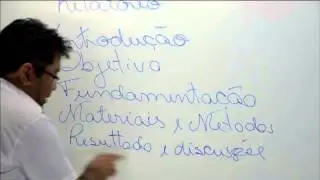 Relatório
Introdução
Objetivo
Fundamentação
Materiais e Métodos
Resultado e discussões